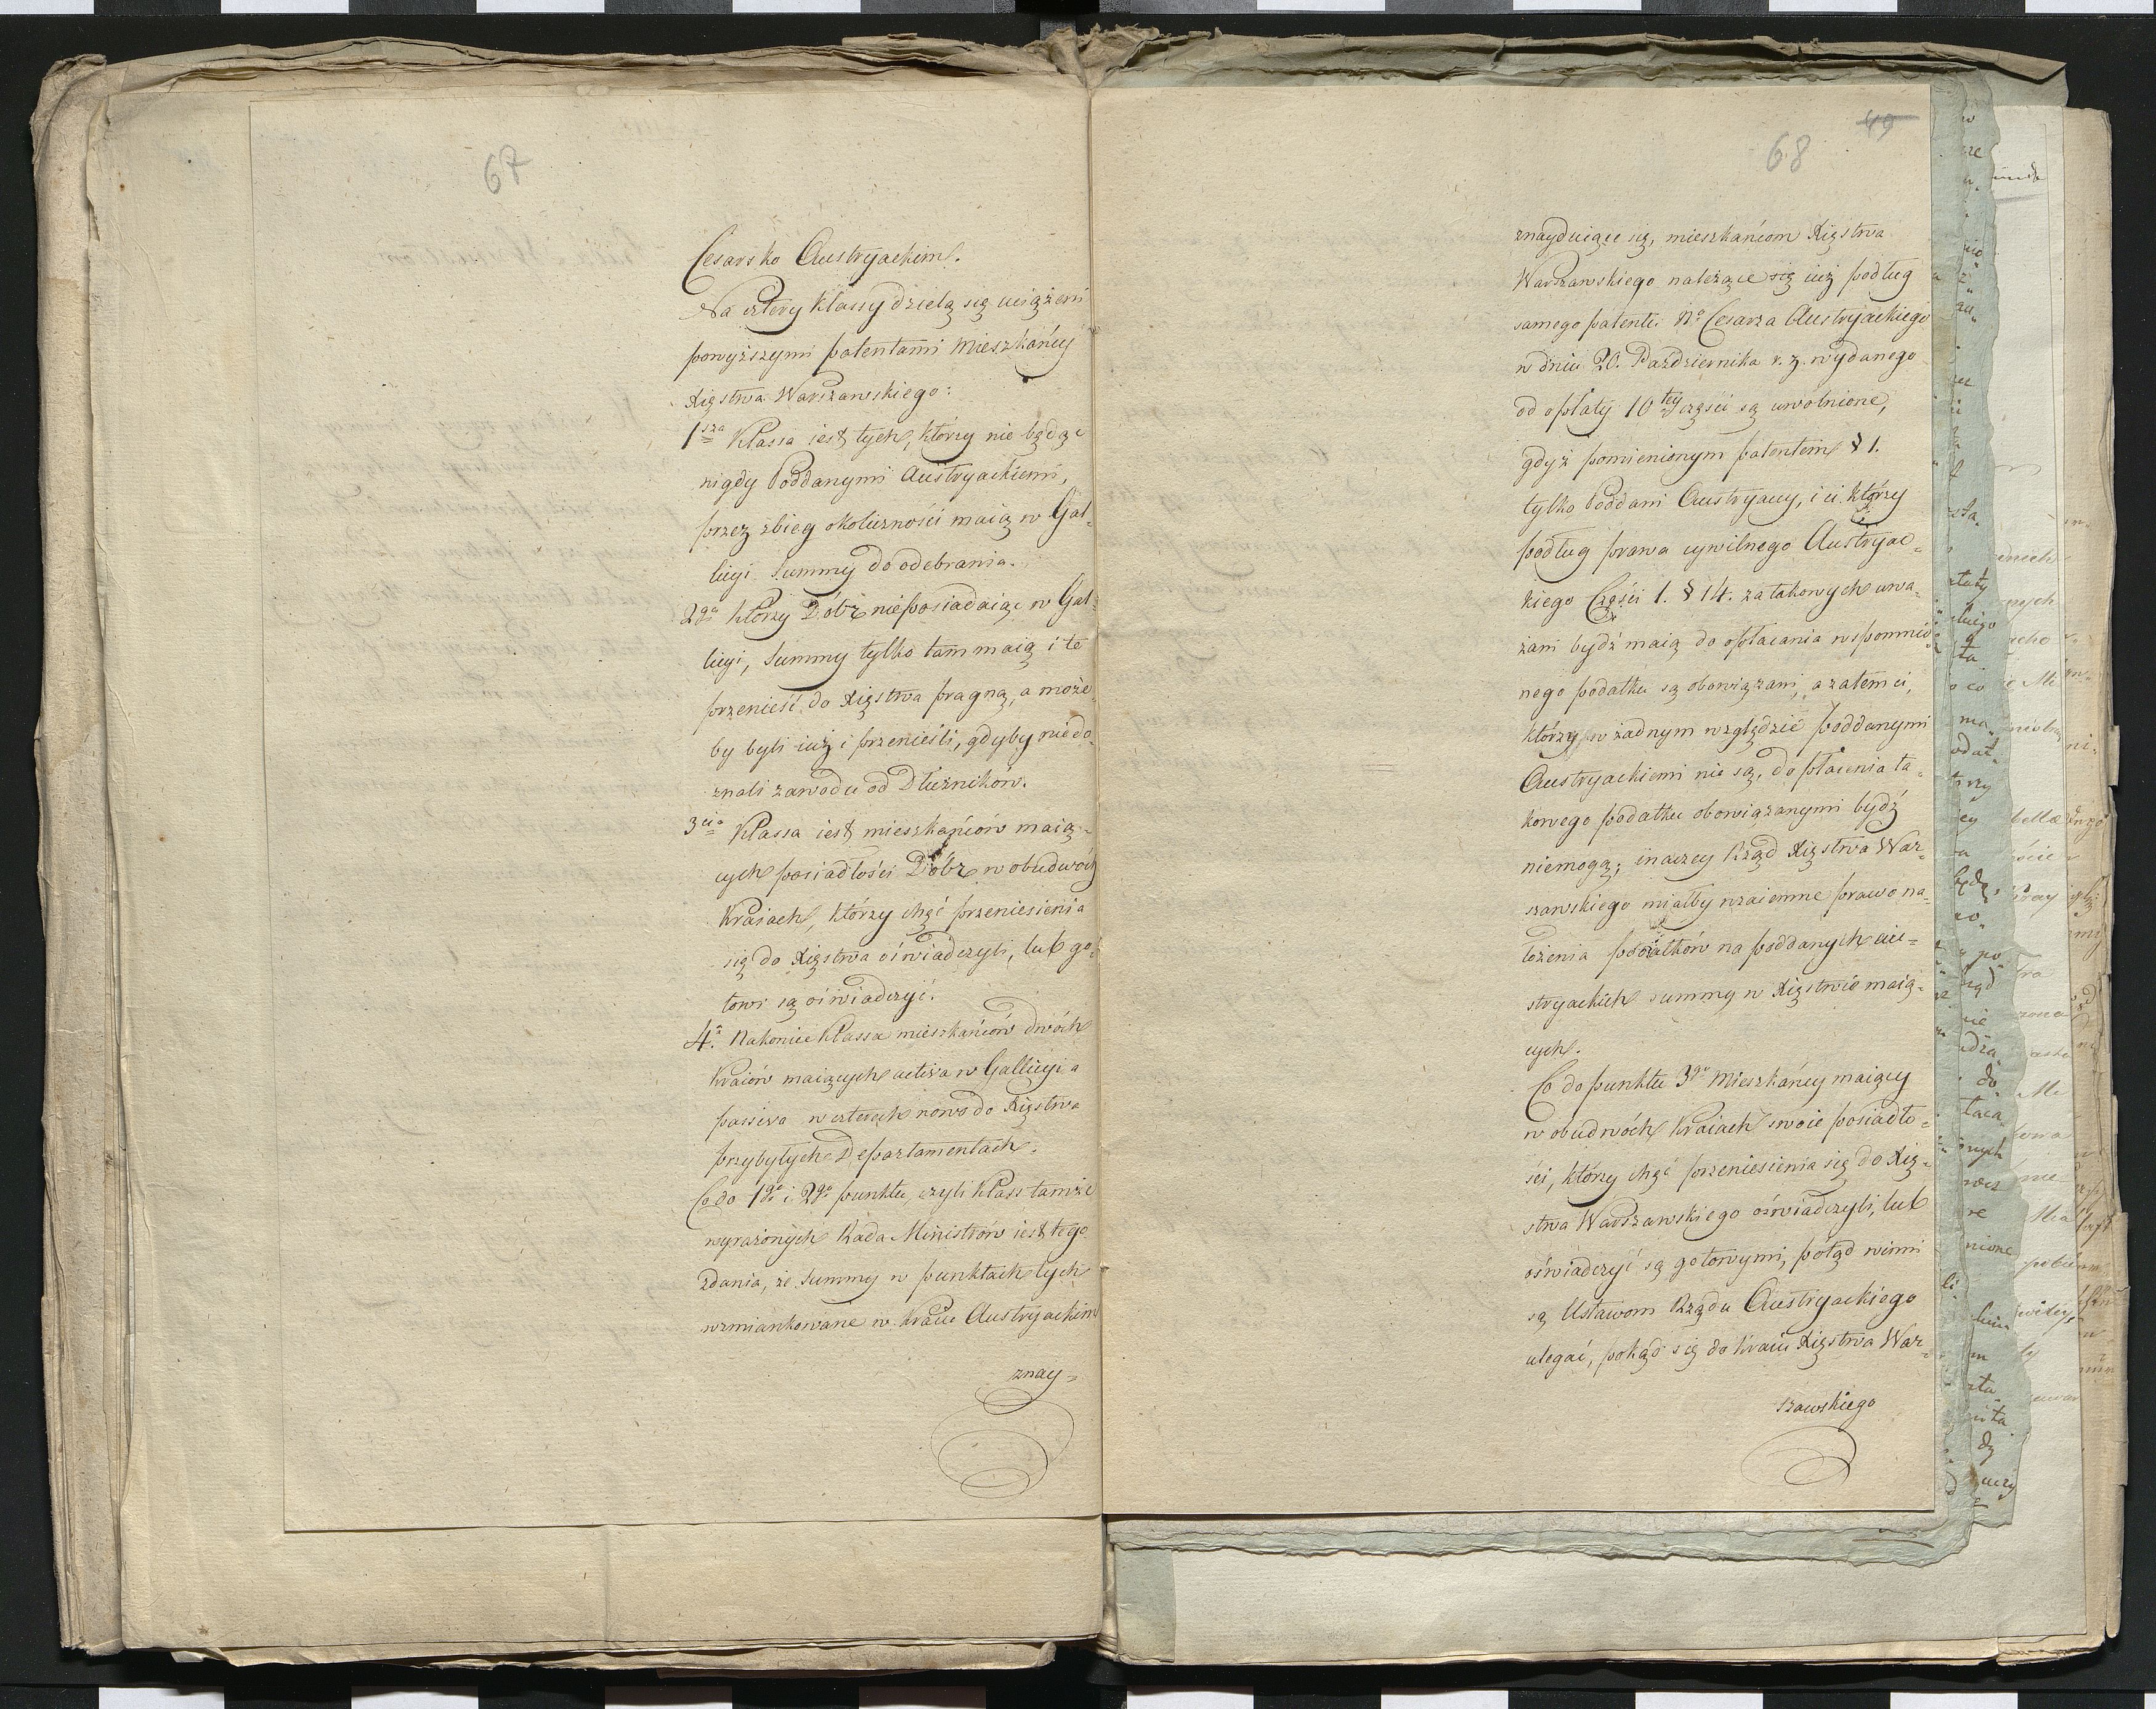 67
Cesarsko Austryackim.
Na cztery Klassy dzielą się uciążeni
powyższymi patentami Mieszkańcy
Xięstwa Warszawskiego:
1sza Klassa iest tych, którzy nie będąc
nigdy Poddanymi Austryackiemi,
przez zbieg okoliczności maią w Gal-
licyi Summy do odebrania.
2ga którzy Dóbr nieposiadaiąc w Gal-
licyi, Summy tylko tam maią i te
przenieść do Xięstwa pragną, a może-
by byli iuż i przenieśli, gdyby niedo-
znali zawodu od Dłużników.
3cia Klassa iest mieszkańców maią-
cych posiadłości Dóbr w obudwóch
Kraiach, którzy chęć przeniesienia
się do Xięstwa oświadczyli, lub go-
towi są oświadczyć.
4a Nakoniec Klassa mieszkańców dwóch
Kraiów maiących activa w Gallicyi a
passiva w czterech nowo do Xięstwa
przybyłych Departamentach.
Co do 1go i 2go punktu czyli Klass tamże
wyrażonych Rada Ministrów iest tego
zdania, że Summy w punktach tych
wzmiankowane w Kraiu Austryackim
znay-
68
49
znayduiące się, mieszkańcom Xięstwa
Warszawskiego należące się iuż podług
samego patentu No Cesarza Austryackiego
w dniu 20. Października r. z. wydanego
od opłaty 10tey części są uwolnione,
gdyż pomienionym patentem § 1.
tylko Poddani Austryaccy, i ci którzy
podług prawa cywilnego Austryac-
kiego Części 1. § 14. za takowych uwa-
żani bydź maią do opłacania wspomnio-
nego podatku są obowiązani, a zatem ci,
którzy w żadnym względzie poddanymi
Austryackiemi nie są, do płacenia ta-
kowego podatku obowiązanymi bydź
niemogą; inaczey Rząd Xięstwa War-
szawskiego miałby wzaiemne prawo na-
łożenia podatków na poddanych au-
stryackich summy w Xięstwie maią-
cych.
Co do punktu 3go Mieszkańcy maiący
w obudwóch Kraiach swoie posiadło-
ści, którzy chęć przeniesienia się do Xię-
stwa Warszawskiego oświadczyli, lub
oświadczyć są gotowymi, potąd winni
są Ustawom Rządu Austryackiego
ulegać, pokąd się do Kraiu Xięstwa War-
szawskiego